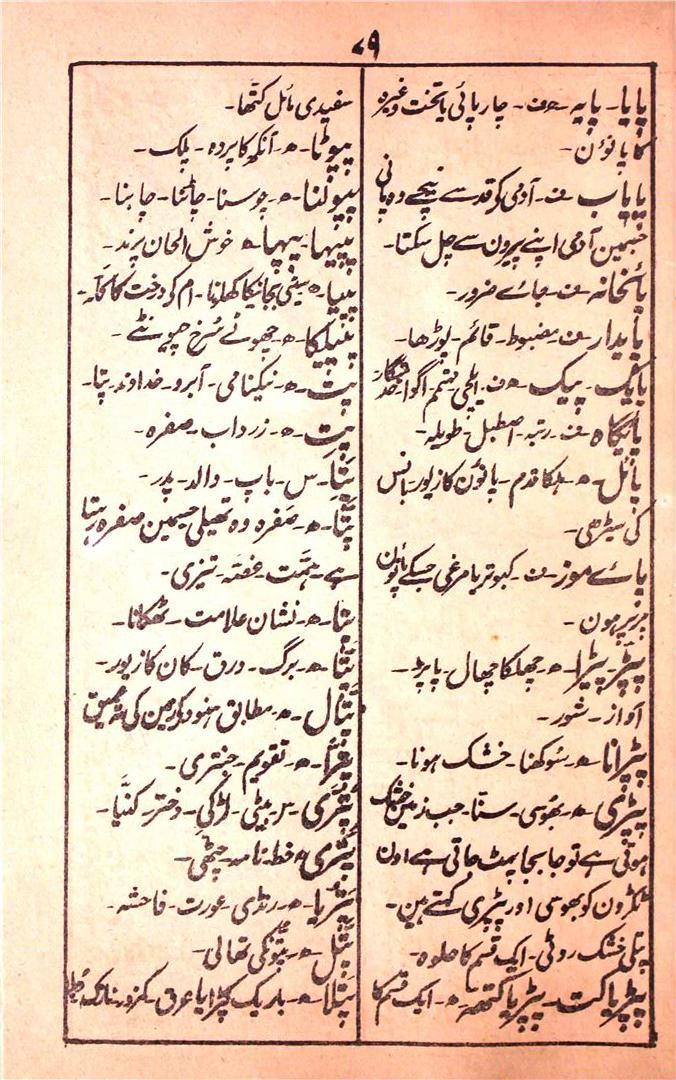 ۷۹
پایا۔ پایہ ۔ ھ ف ۔ چارپائی یا تخت وغیرہ
کا پانوٴن۔
پایاب ۔ ف ۔ آدمی کے قد سے نیچے وہ پانی
جسمین آدمی اپنے پیرون سے چل سکتا۔
پائخانہ ۔ ف ۔ جائے ضرور۔
پایدار ۔ ف ۔ مضبوط ۔ قائم ۔ پوڑھا۔
پایک ۔ پیک ۔ ھ ف ۔ ایلچی
پائیگاہ ۔ ف ۔ رتبہ ۔ اصطبل ۔ طویلہ۔
پائل ۔ ھ ۔ ہلکا قدم ۔ پانوٴن کا زیور ۔ بانس
کی سیڑھی۔
پائے موز ۔ ف ۔ کبوتر یا مرغی جسکے پانوٴن
پر پر ہون۔
پپڑ۔ پپڑا ۔ ھ ۔ چھلکا چھال ۔ پاپڑ۔
آواز ۔ شور۔
پپڑانا ۔ ھ ۔ سوکھنا ۔ خشک ہونا۔
پپڑی ۔ ھ ۔ بھوسی ۔ ستا ۔ جب زمین خشک
ہوتی ہے تو جا بجا پھٹ جاتی ہے اون
ٹکڑون کو بھوسی اور پپڑی کہتے ہین۔
پتلی خشک روٹی ۔ ایک قسم کا حلوہ۔
پپڑیا کت ۔ پپڑیا کتھہ ۔ ھ ۔ ایک قسم کا
سفیدی مائل کتھا۔
پپوٹا ۔ ھ ۔ آنکھ کا پردہ ۔ پلک۔
پپولنا ۔ ھ ۔ چوسنا ۔ چاٹنا ۔ چابنا۔
پپیہا ۔ پیپہا ۔ ھ ۔ خوش الحان پرند۔
پپیا ۔ ھ ۔ سیٹی بجانیکا کھلونا ۔ ام کے درخت کا
پپیلیکا ۔ ھ ۔ چھوٹے سرخ چیونٹے۔
پت ۔ ھ ۔ نیکنامی ۔ آبرو ۔ خداوند ۔ پتا۔
پت ۔ ھ ۔ زرداب ۔ صفرہ۔
پتا ۔ س ۔ باپ ۔ والد ۔ پدر۔
پتا ۔ ھ ۔ صفرہ وہ تھیلی جسمین صفرہ رہتا
ہے ۔ ہمت ۔ غصہ ۔ تیزی۔
پتا ۔ ھ ۔ نشان علامت ۔ ٹھکانا۔
پتا ۔ ھ ۔ برگ ۔ ورق ۔ کان کا زیور۔
پتال ۔ ھ ۔ مطابق ہنود کے زمین کی تہ
پترا ۔ ھ ۔ تقویم ۔ جنتری۔
پتری ۔ س ۔ بیٹی ۔ لڑکی ۔ دختر ۔ کنیا۔
پتری ۔ ھ ۔ خط ۔ نامہ ۔ چٹھی۔
پتریا ۔ ھ ۔ رنڈی عورت ۔ فاحشہ۔
پتل ۔ ھ ۔ پتونکی تھالی۔
پتلا ۔ ھ ۔ باریک کپڑا یا عرق ۔ کمزور ۔ نازک